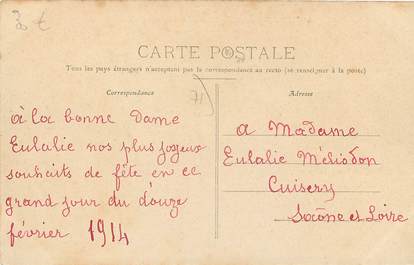 30 €
CARTE POSTALE
Tous les pays étrangers n'acceptent pas la correspondance au recto (se renseigner à la poste)
Correspondance
71
à la bonne Dame
Eulalie nos plus joyeux
souhaits de fête en ce
grand jour du douze
février 1914
Adresse
a Madame
Eulalie Méliodon
Cuisery
Saône et Loire